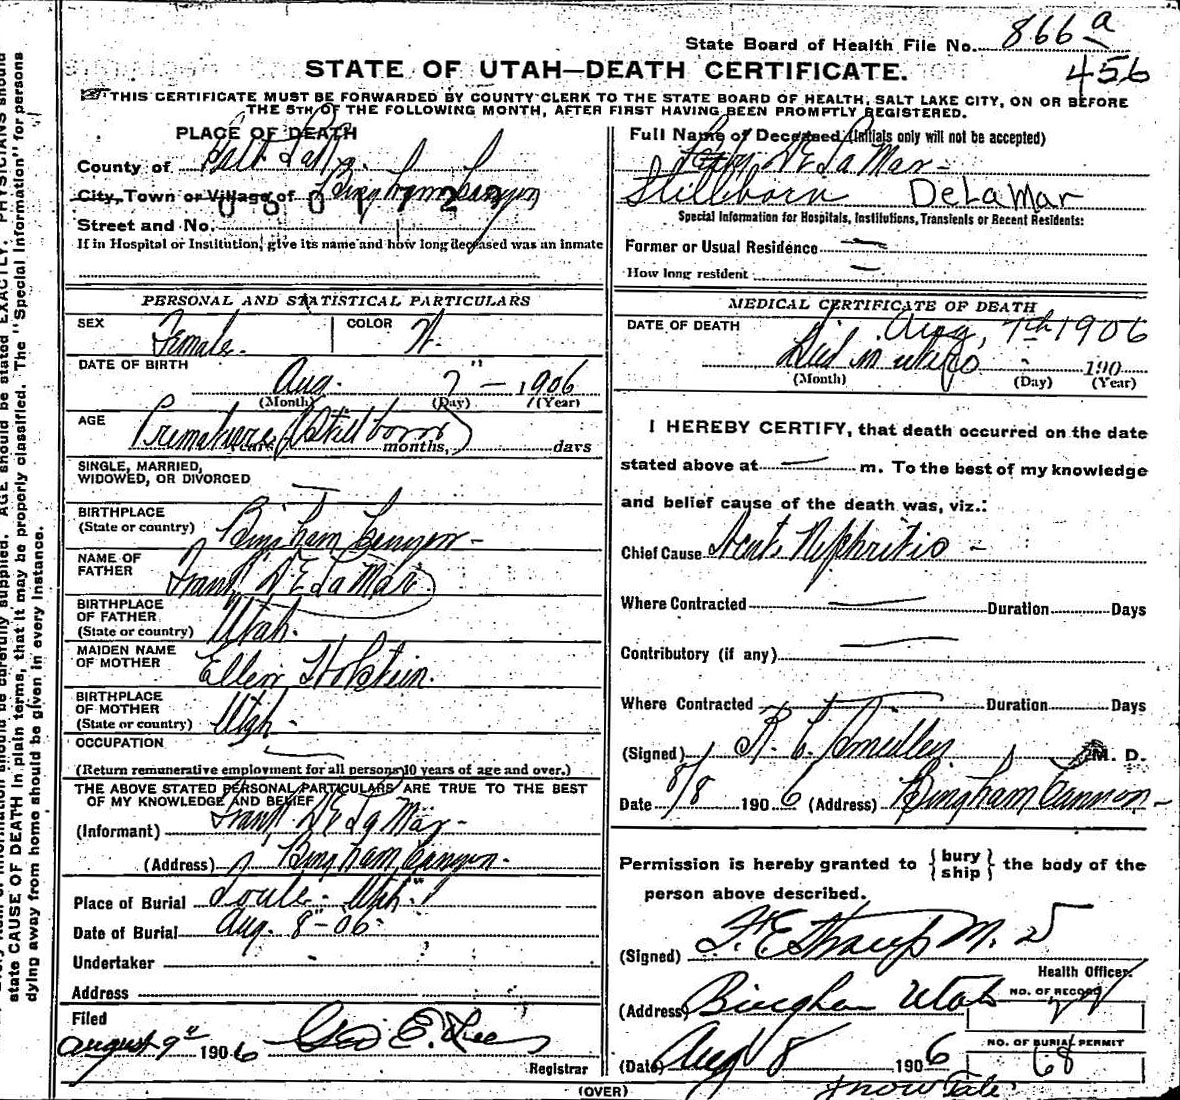 State Board of Health File No. 866 a
456
STATE OF UTAH—DEATH CERTIFICATE.
THIS CERTIFICATE MUST BE FORWARDED BY COUNTY CLERK TO THE STATE BOARD OF HEALTH, SALT LAKE CITY, ON OR BEFORE
THE 5TH OF THE FOLLOWING MONTH, AFTER FIRST HAVING BEEN PROMPTLY REGISTERED.
PLACE OF DEATH
County of Salt Lake
City, Town or Village of Bingham Canyon
Street and No.
If in Hospital or Institution, give its name and how long deceased was an inmate
Full Name of Deceased (Initials only will not be accepted)
Baby DeLaMar
Stillborn DeLaMar
Special Information for Hospitals, Institutions, Transients or Recent Residents:
Former or Usual Residence —
How long resident —
PERSONAL AND STATISTICAL PARTICULARS
SEX Female. COLOR W.
DATE OF BIRTH
Aug. 7" — 1906
(Month) (Day) (Year)
AGE Premature (Stillborn)
years, months, days
SINGLE, MARRIED,
WIDOWED, OR DIVORCED —
BIRTHPLACE
(State or country) Bingham Canyon -
NAME OF
FATHER Frank DeLaMar
BIRTHPLACE
OF FATHER
(State or country) Utah.
MAIDEN NAME
OF MOTHER Ellen Holstein.
BIRTHPLACE
OF MOTHER
(State or country) Utah -
OCCUPATION —
(Return remunerative employment for all persons 10 years of age and over.)
THE ABOVE STATED PERSONAL PARTICULARS ARE TRUE TO THE BEST
OF MY KNOWLEDGE AND BELIEF
(Informant) Frank DeLaMar -
(Address) Bingham Canyon.
Place of Burial Utah
Date of Burial Aug. 8" - 06
Undertaker
Address
Filed
August 9" 1906 Geo E.
Registrar
(OVER)
MEDICAL CERTIFICATE OF DEATH
DATE OF DEATH Aug, 7th 1906
Died in utero 190
(Month) (Day) (Year)
I HEREBY CERTIFY, that death occurred on the date
stated above at — m. To the best of my knowledge
and belief cause of the death was, viz.:
Chief Cause Acute Nephritis -
Where Contracted — Duration Days
Contributory (if any) —
Where Contracted — Duration Days
(Signed) M. D.
Date 8/8 1906 (Address) Bingham Cannon -
Permission is hereby granted to {bury
ship} the body of the
person above described.
(Signed) F. E. Straup M. D
Health Officer.
(Address) Bingham Utah
NO. OF RECORD
(Date) Aug 8 1906
NO. OF BURIAL PERMIT
68
state CAUSE OF DEATH in plain terms, that it may be properly classified. The "Special Information" for persons
dying away from home should be given in every instance.